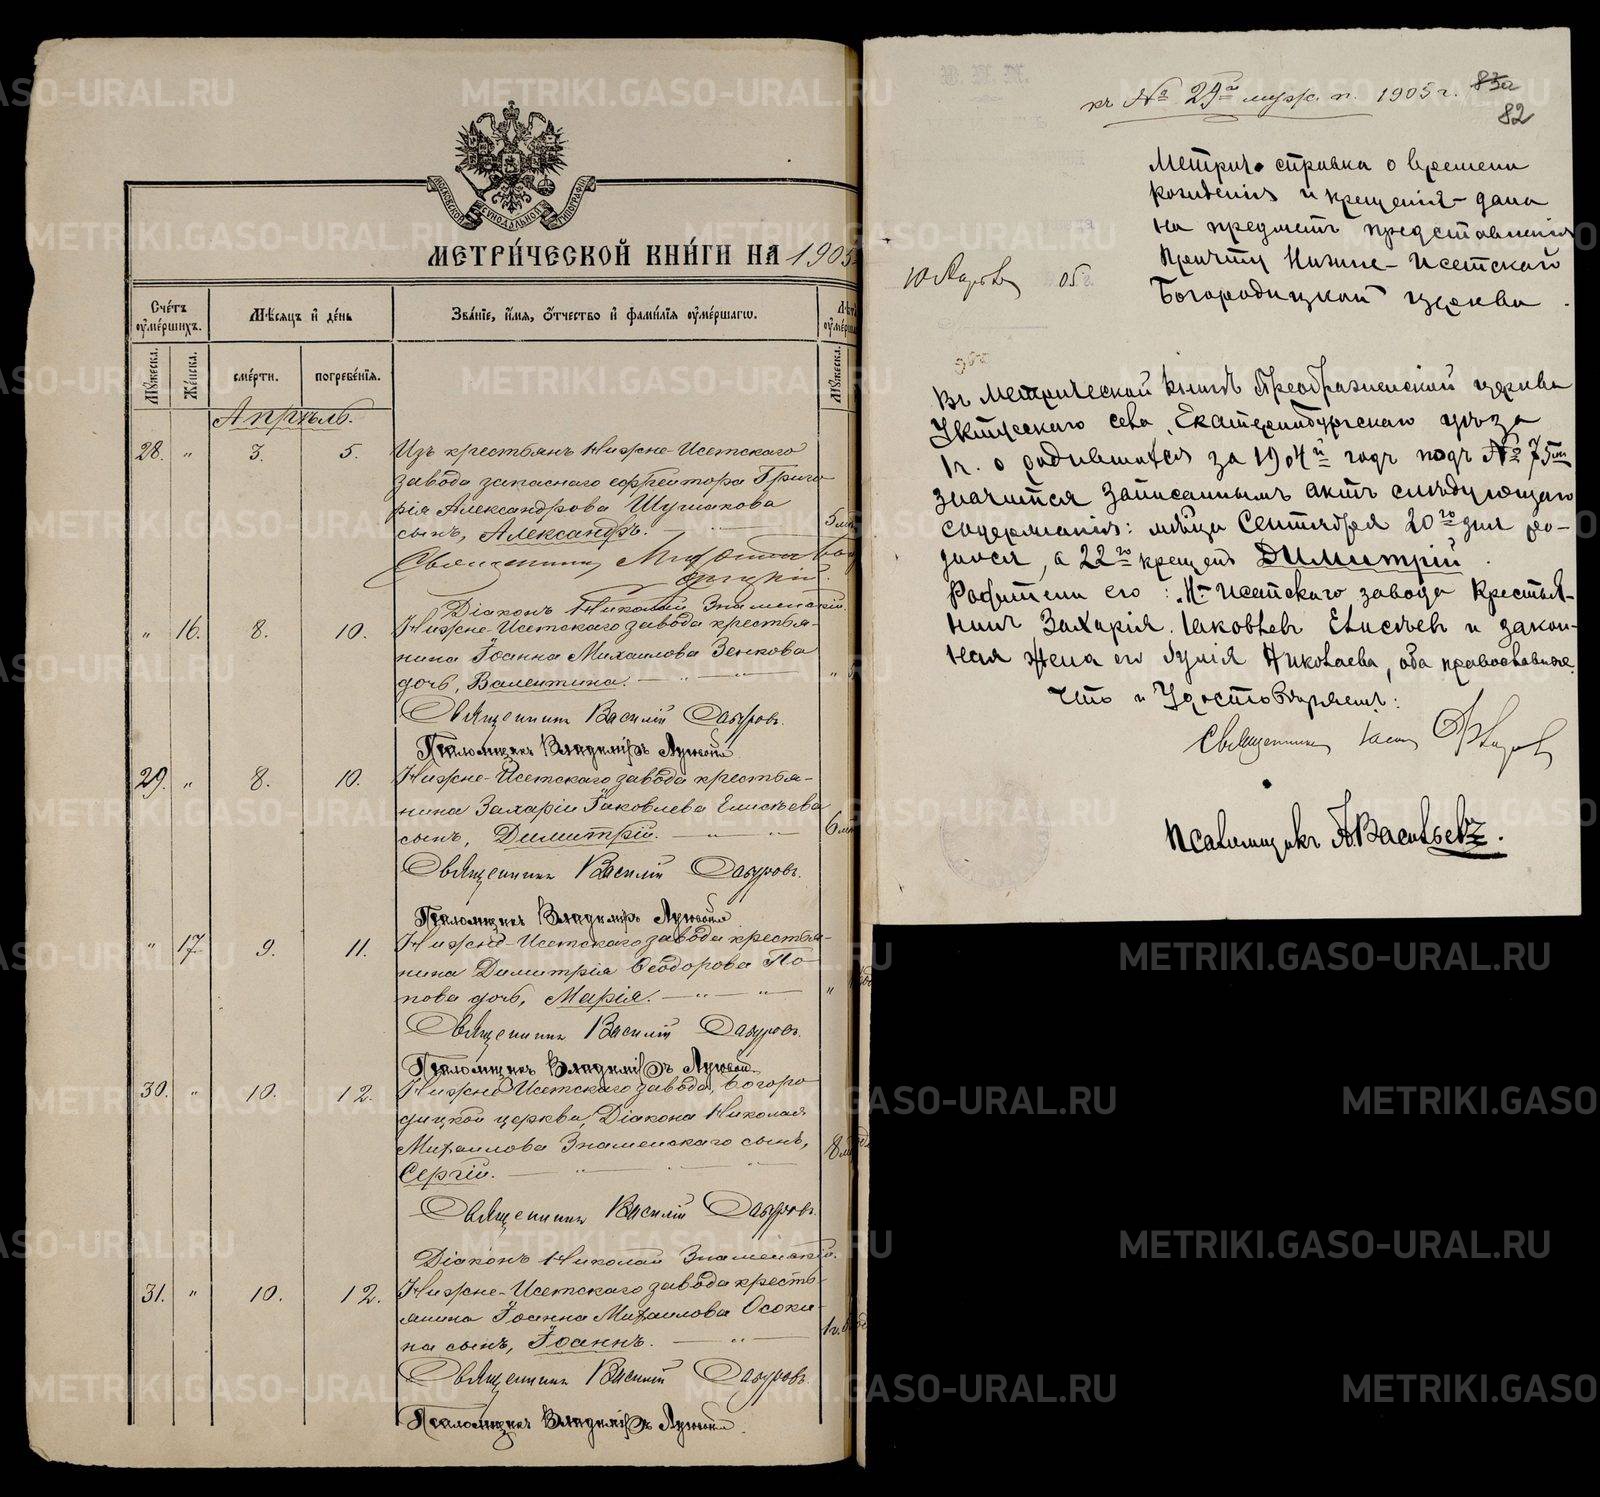 МОСКОВСКОЙ СѴНОДАЛЬНОЙ ТИПОГРАФІИ
МЕТРИ́ЧЕСКОЙ КНИ́ГИ НА 1905
Сче́тъ ᲂу҆ме́ршихъ.
Мѣ́сяцъ и҆ де́нь
Зва́нїе, и҆́мя, ѻ҆́тчество и҆ фами́лїя ᲂу҆ме́ршагѡ.
Мꙋ́жеска.
Же́нска.
сме́рти.
погребе́нїя.
Мꙋ́жеска.
Апрѣль.
28. " 3. 5. Изъ крестьянъ Нижне-Исетскаго
завода запаснаго ефрейтора Григо
рія Александрова Шушакова
сынъ, Александръ. 5
Священникъ
Діаконъ Николай Знаменскій.
" 16. 8. 10. Нижне-Исетскаго завода крестья-
нина Іоанна Михаилова Зенкова
дочь, Валентина. — " — " — "
Священникъ Василій
Псаломщикъ Владиміръ Луговой
29. " 8. 10. Нижне-Исетскаго завода крестья-
нина Захаріи Іаковлева Елисѣева
сынъ, Димитрій. — " — " 6
Священникъ Василій
Псаломщикъ Владиміръ Луговой
" 17 9. 11. Нижне-Исетскаго завода крестья-
нина Димитрія Ѳеодорова По-
пова дочь, Марія. — " — " — "
Священникъ Василій
Псаломщикъ Владиміръ Луговой
30. " 10. 12. Нижне-Исетскаго завода, Богоро
дицкой церкви, Діакона Николая
Михаилова Знаменскаго сынъ, 8
Сергій. — " — " — "
Священникъ Василій
Діаконъ Николай Знаменскій.
31. " 10. 12. Нижне-Исетскаго завода кресть-
янина Іоанна Михаилова Осоки-
на сынъ, Іоаннъ. — " — 1г.
Священникъ Василій
Псаломщикъ Владиміръ Луговой
къ № 29й муж. п. 1905 г. 83а
82
Метрич. справка о времени
рожденія и крещенія - дана
на предметъ представленія
Причту Нижне-Исетской
Богородицкой церкви.
10 05 г.
Въ метрической книгѣ Преображенской церкви
Уктусскаго села, Екатеринбургскаго уѣзда
1ч. о родившихся за 1904й годъ подъ № 75мъ
значится записаннымъ актъ слѣдующаго
содержанія: мѣсяца Сентября 20го дня ро-
дился, а 22го крещенъ Димитрій.
Родители его: Н-Исетскаго завода крестья-
нинъ Захарія Іаковлевъ Елисѣевъ и закон-
ная жена его Іулія Николаева, оба православные.
Что и удостовѣряемъ:
Священникъ
Псаломщикъ А. Васильевъ.
METRIKI.GASO-URAL.RU